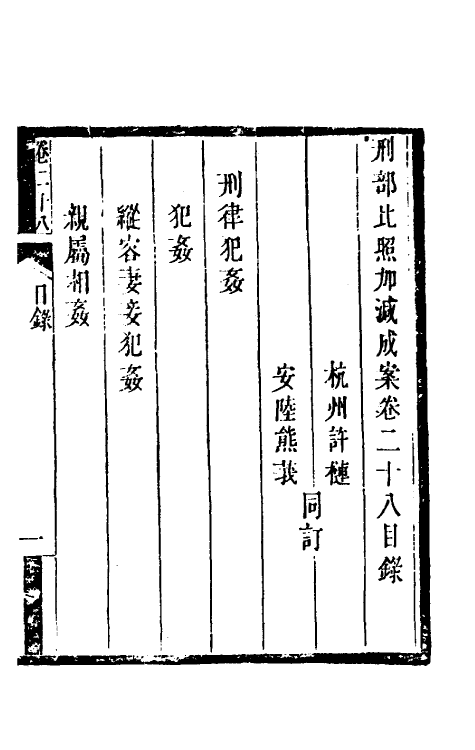 刑部比照加減成案卷二十八目錄
杭州許槤
安陸熊莪
同訂
刑律犯姦
犯姦
縱容妻妾犯姦
親屬相姦
卷二十八
目錄
一